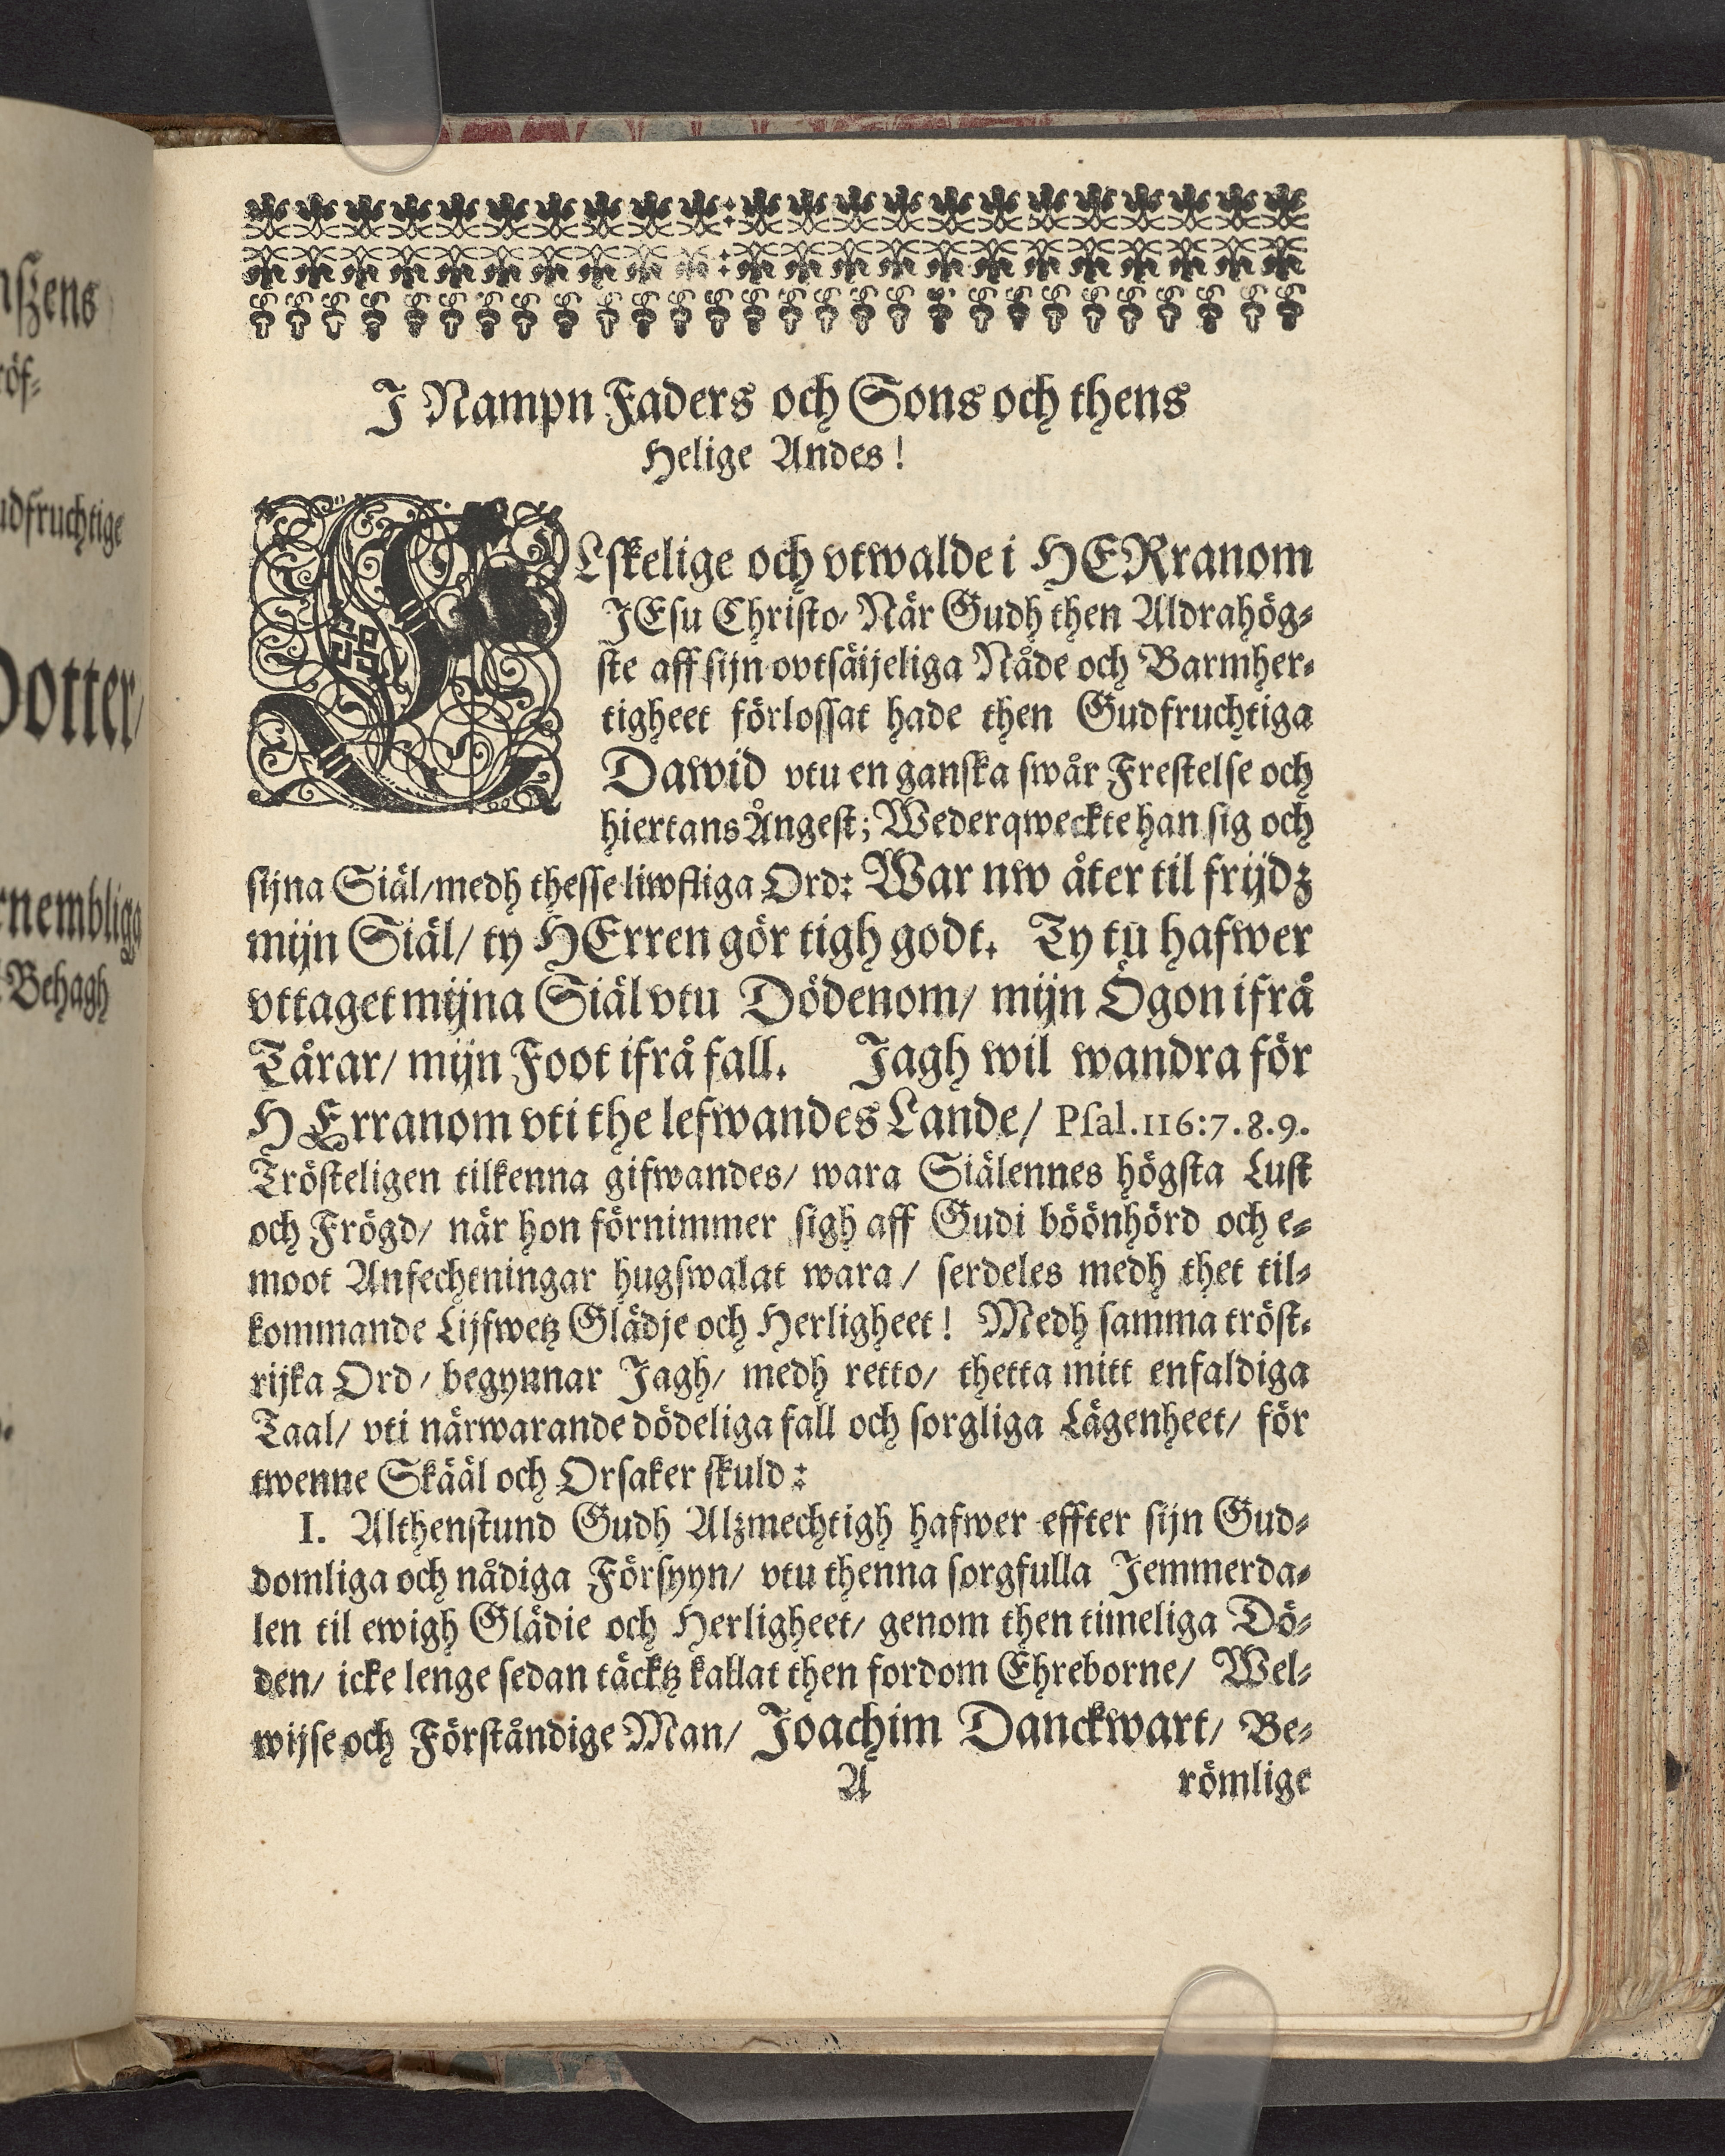 J Nampn Faders och Sons och thens
Helige Andes!
ELskelige och vtwalde i HERranom
JEsu Christo/ När Gudh then Aldrahög-
ste aff sijn ovtsäijeliga Nåde och Barmher-
tigheet förlossat hade then Gudfruchtiga
Dawid vtu en ganska swår Frestelse och
hiertans Ångest; Wederqweckte han sig och
sijna Siäl/ medh thesse liwfliga Ord: War nw åter til frijdz
mijn Siäl/ ty HErren gör tigh godt. Ty tu hafwer
vttaget mijna Siäl vtu Dödenom/ mijn Ögon ifrå
Tårar/ mijn Foot ifrå fall. Jagh wil wandra för
HErranom vti the lefwandes Lande/ Psal.116:7.8.9.
Trösteligen tilkenna gifwandes/ wara Siälennes högsta Lust
och Frögd/ när hon förnimmer sigh aff Gudi böönhörd och e-
moot Anfechtningar hugswalat wara/ serdeles medh thet til-
kommande Lijfwetz Glädje och Herligheet! Medh samma tröst-
rijka Ord/ begynnar Jagh/ medh retto/ thetta mitt enfaldiga
Taal/ vti närwarande dödeliga fall och sorgliga Lägenheet/ för
twenne Skääl och Orsaker skuld:
I. Althenstund Gudh Alzmechtigh hafwer effter sijn Gud-
domliga och nådiga Försyyn/ vtu thenna sorgfulla Jemmerda-
len til ewigh Glädie och Herligheet/ genom then timeliga Dö-
den/ icke lenge sedan täcktz kallat then fordom Ehreborne/ Wel-
wijse och Förståndige Man/ Joachim Danckwart/ Be-
A römlige
udfruchtige
Dotter/
Behagh